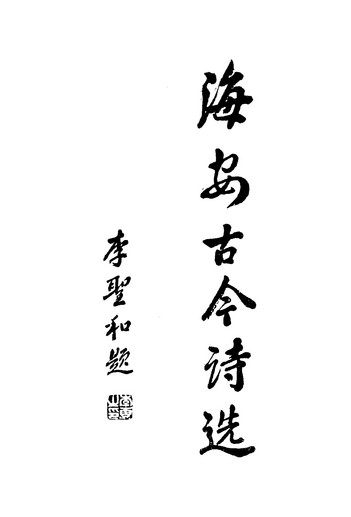 海安古今诗选
李聖和题